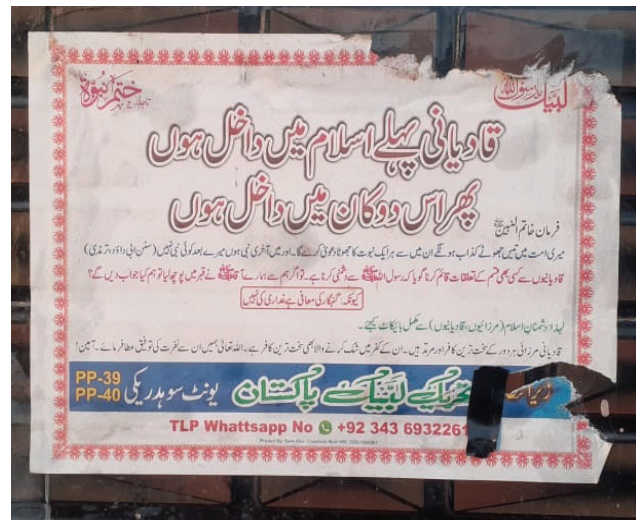 لبیک یا رسول اللہ ﷺ
تاجدارِ ختمِ نبوۃ
قادیانی پہلے اسلام میں داخل ہوں
پھر اس دوکان میں داخل ہوں
فرمان خاتم النبیین ﷺ
میری امت میں تیس جھوٹے کذاب ہونگے ان میں سے ہر ایک نبوت کا جھوٹا دعویٰ کرے گا۔ اور میں آخری نبی ہوں میرے بعد کوئی نبی نہیں (سنن ابی داؤد، ترمذی)
قادیانیوں سے کسی بھی قسم کے تعلقات قائم کرنا گویا کہ رسول اللہ ﷺ سے دشمنی کرنا ہے۔ تو اگر ہم سے ہمارے آقا ﷺ نے قبر میں پوچھ لیا تو ہم کیا جواب دیں گے؟
کیونکہ گنہگار کی معافی ہے غدار کی نہیں
لہذا دشمنانِ اسلام (مرزائیوں، قادیانیوں) سے مکمل بائیکاٹ کیجئے۔
قادیانی مرزائی ہر دور کے سخت ترین کافر اور مرتد ہیں۔ ان کے کفر میں شک کرنے والا بھی سخت ترین کافر ہے۔ اللہ تعالیٰ ہمیں ان سے نفرت کی توفیق عطا فرمائے۔ آمین!
تحریک لبیک پاکستان یونٹ سوہدریکی PP-39
PP-40
TLP Whattsapp No +92 343 6932261